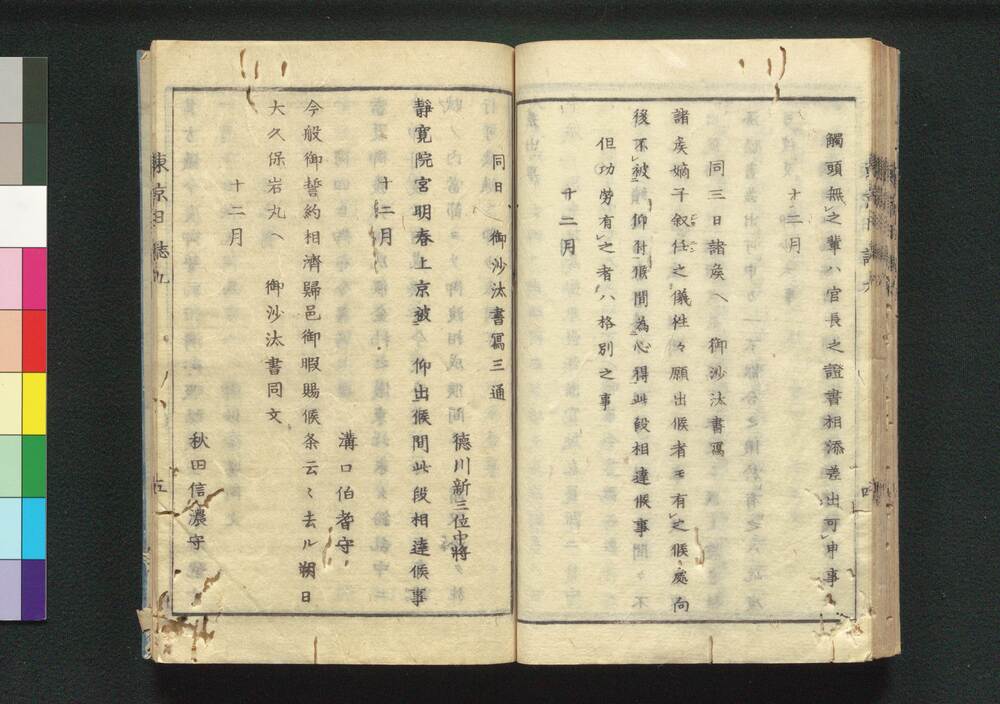 觸頭無レ之輩ハ官長之證書相添差出可レ申事
十二月
同三日諸矦ヘ 御沙汰書寫
諸矦嫡子叙任之儀徃々願出候者モ有レ之候處向
後不レ被二 仰付一候間為二心得一此段相達候事間々不
但功勞有レ之者ハ格別之事
十二月
同日 御沙汰書寫三通
德川新三位中將
靜寬院宮明春上京被二 仰出一候間此段相達候事
十二月
溝口伯耆守
今般御誓約相濟歸邑御暇賜候条云々去ル朔日
大久保岩丸ヘ 御沙汰書同文
十二月
秋田信濃守
東京日誌九